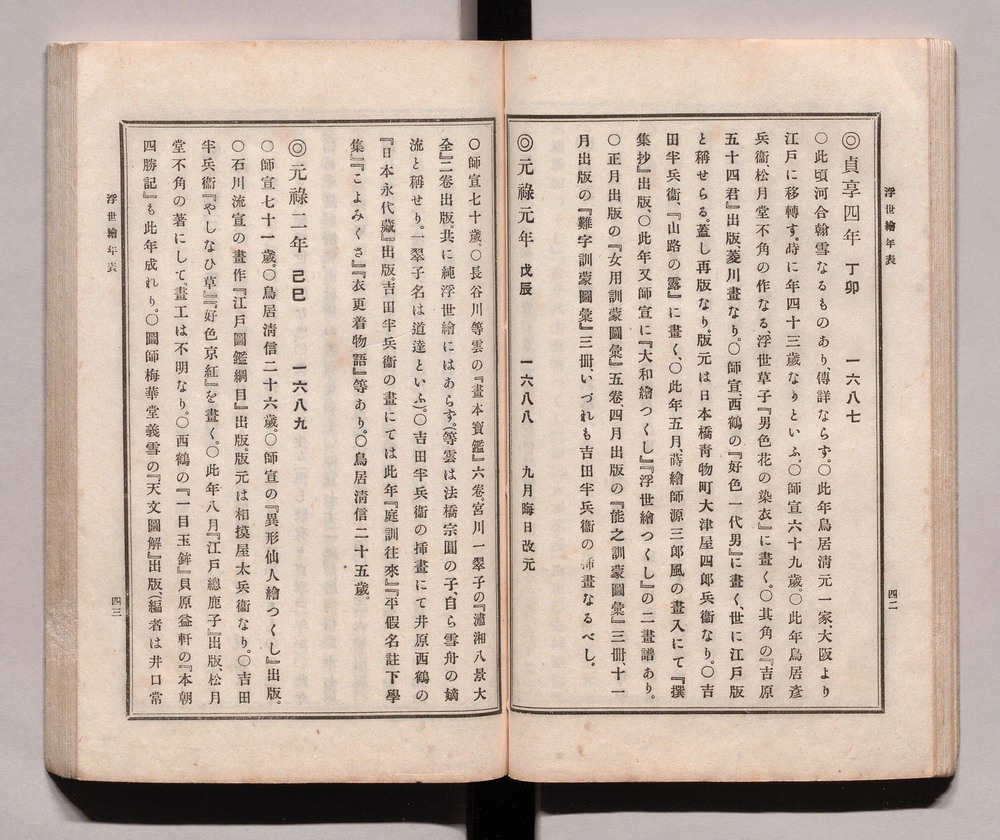 浮世繪年表
◎貞享四年　丁卯　一六八七
○此頃河合翰雪なるものあり、傳詳ならず。○此年鳥居淸元一家、大阪より
江戸に移轉す。時に年四十三歲なりといふ。○師宣六十九歲。○此年鳥居彥
兵衞松月堂不角の作なる、浮世草子『男色花の染衣』に畫く。○其角の『吉原
五十四君』出版、菱川畫なり。○師宣、西鶴の『好色一代男』に畫く、世に江戸版
と稱せらる。蓋し再版なり。版元は日本橋靑物町大津屋四郎兵衞なり。○吉
田半兵衞、『山路の露』に畫く、○此年五月、蒔繪師源三郎風の畫入にて『撰
集抄』出版、○此年又師宣に『大和繪つくし』『浮世繪つくし』の二畫譜あり。
○正月出版の『女用訓蒙圖彙』五卷四月出版の『能之訓蒙圖彙』三冊、十一
月出版の『難字訓蒙圖彙』三冊、いづれも吉田半兵衞の揷畫なるべし。
◎元祿元年　戊辰　一六八八　九月晦日改元
四二
○師宣七十歲。○長谷川等雲の『畫本寶鑑』六卷、宮川一翠子の『瀟湘八景大
全』二卷出版。共に純浮世繪にはあらず。(等雲は法橋宗圓の子、自ら雪舟の嫡
流と稱せり。一翠子名は道達といふ)。○吉田半兵衞の揷畫にて井原西鶴の
『日本永代藏』出版。吉田半兵衞の畫にては此年『庭訓往來』『平假名註下學
集』『こよみくさ』『衣更着物語』等あり。○鳥居淸信二十五歲。
◎元祿二年　己巳　一六八九
○師宣七十一歲。○鳥居淸信二十六歲。○師宣の『異形仙人繪つくし』出版。
○石川流宣の畫作『江戸圖鑑綱目』出版。版元は相摸屋太兵衞なり。○吉田
半兵衞『やしなひ草』『好色京紅』を畫く。○此年八月『江戸總鹿子』出版、松月
堂不角の著にして、畫工は不明なり。○西鶴の『一目玉鉾』貝原益軒の『本朝
四勝記』も此年成れり。○圖師梅華堂義雪の『天文圖解』出版(編者は井口常
浮世繪年表
四三